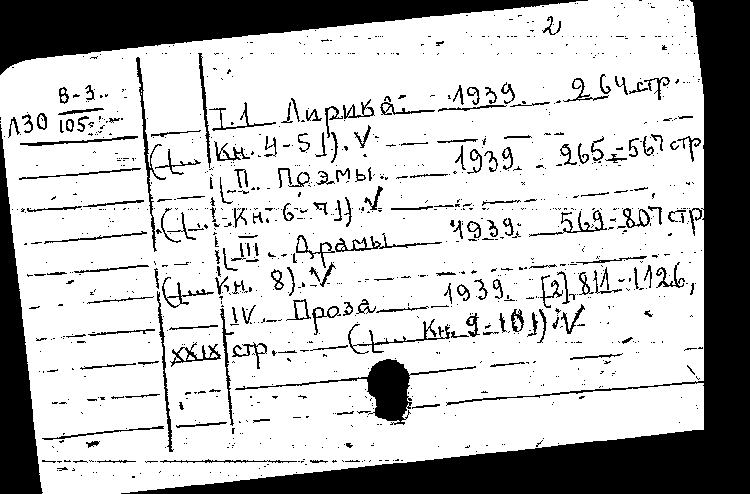 2
В-3
Л30 105
Т.1 Лирика. 1939. 264 стр.
([... Кн. 4-5]). V
[II. Поэмы. 1939. 265-567 стр.
([... Кн. 6-7]) V
[III. Драмы 1939. 569-807 стр
([... Кн. 8). V
IV. Проза 1939. [2], 811-1126,
XXIX стр. ([... Кн. 9-10]) V